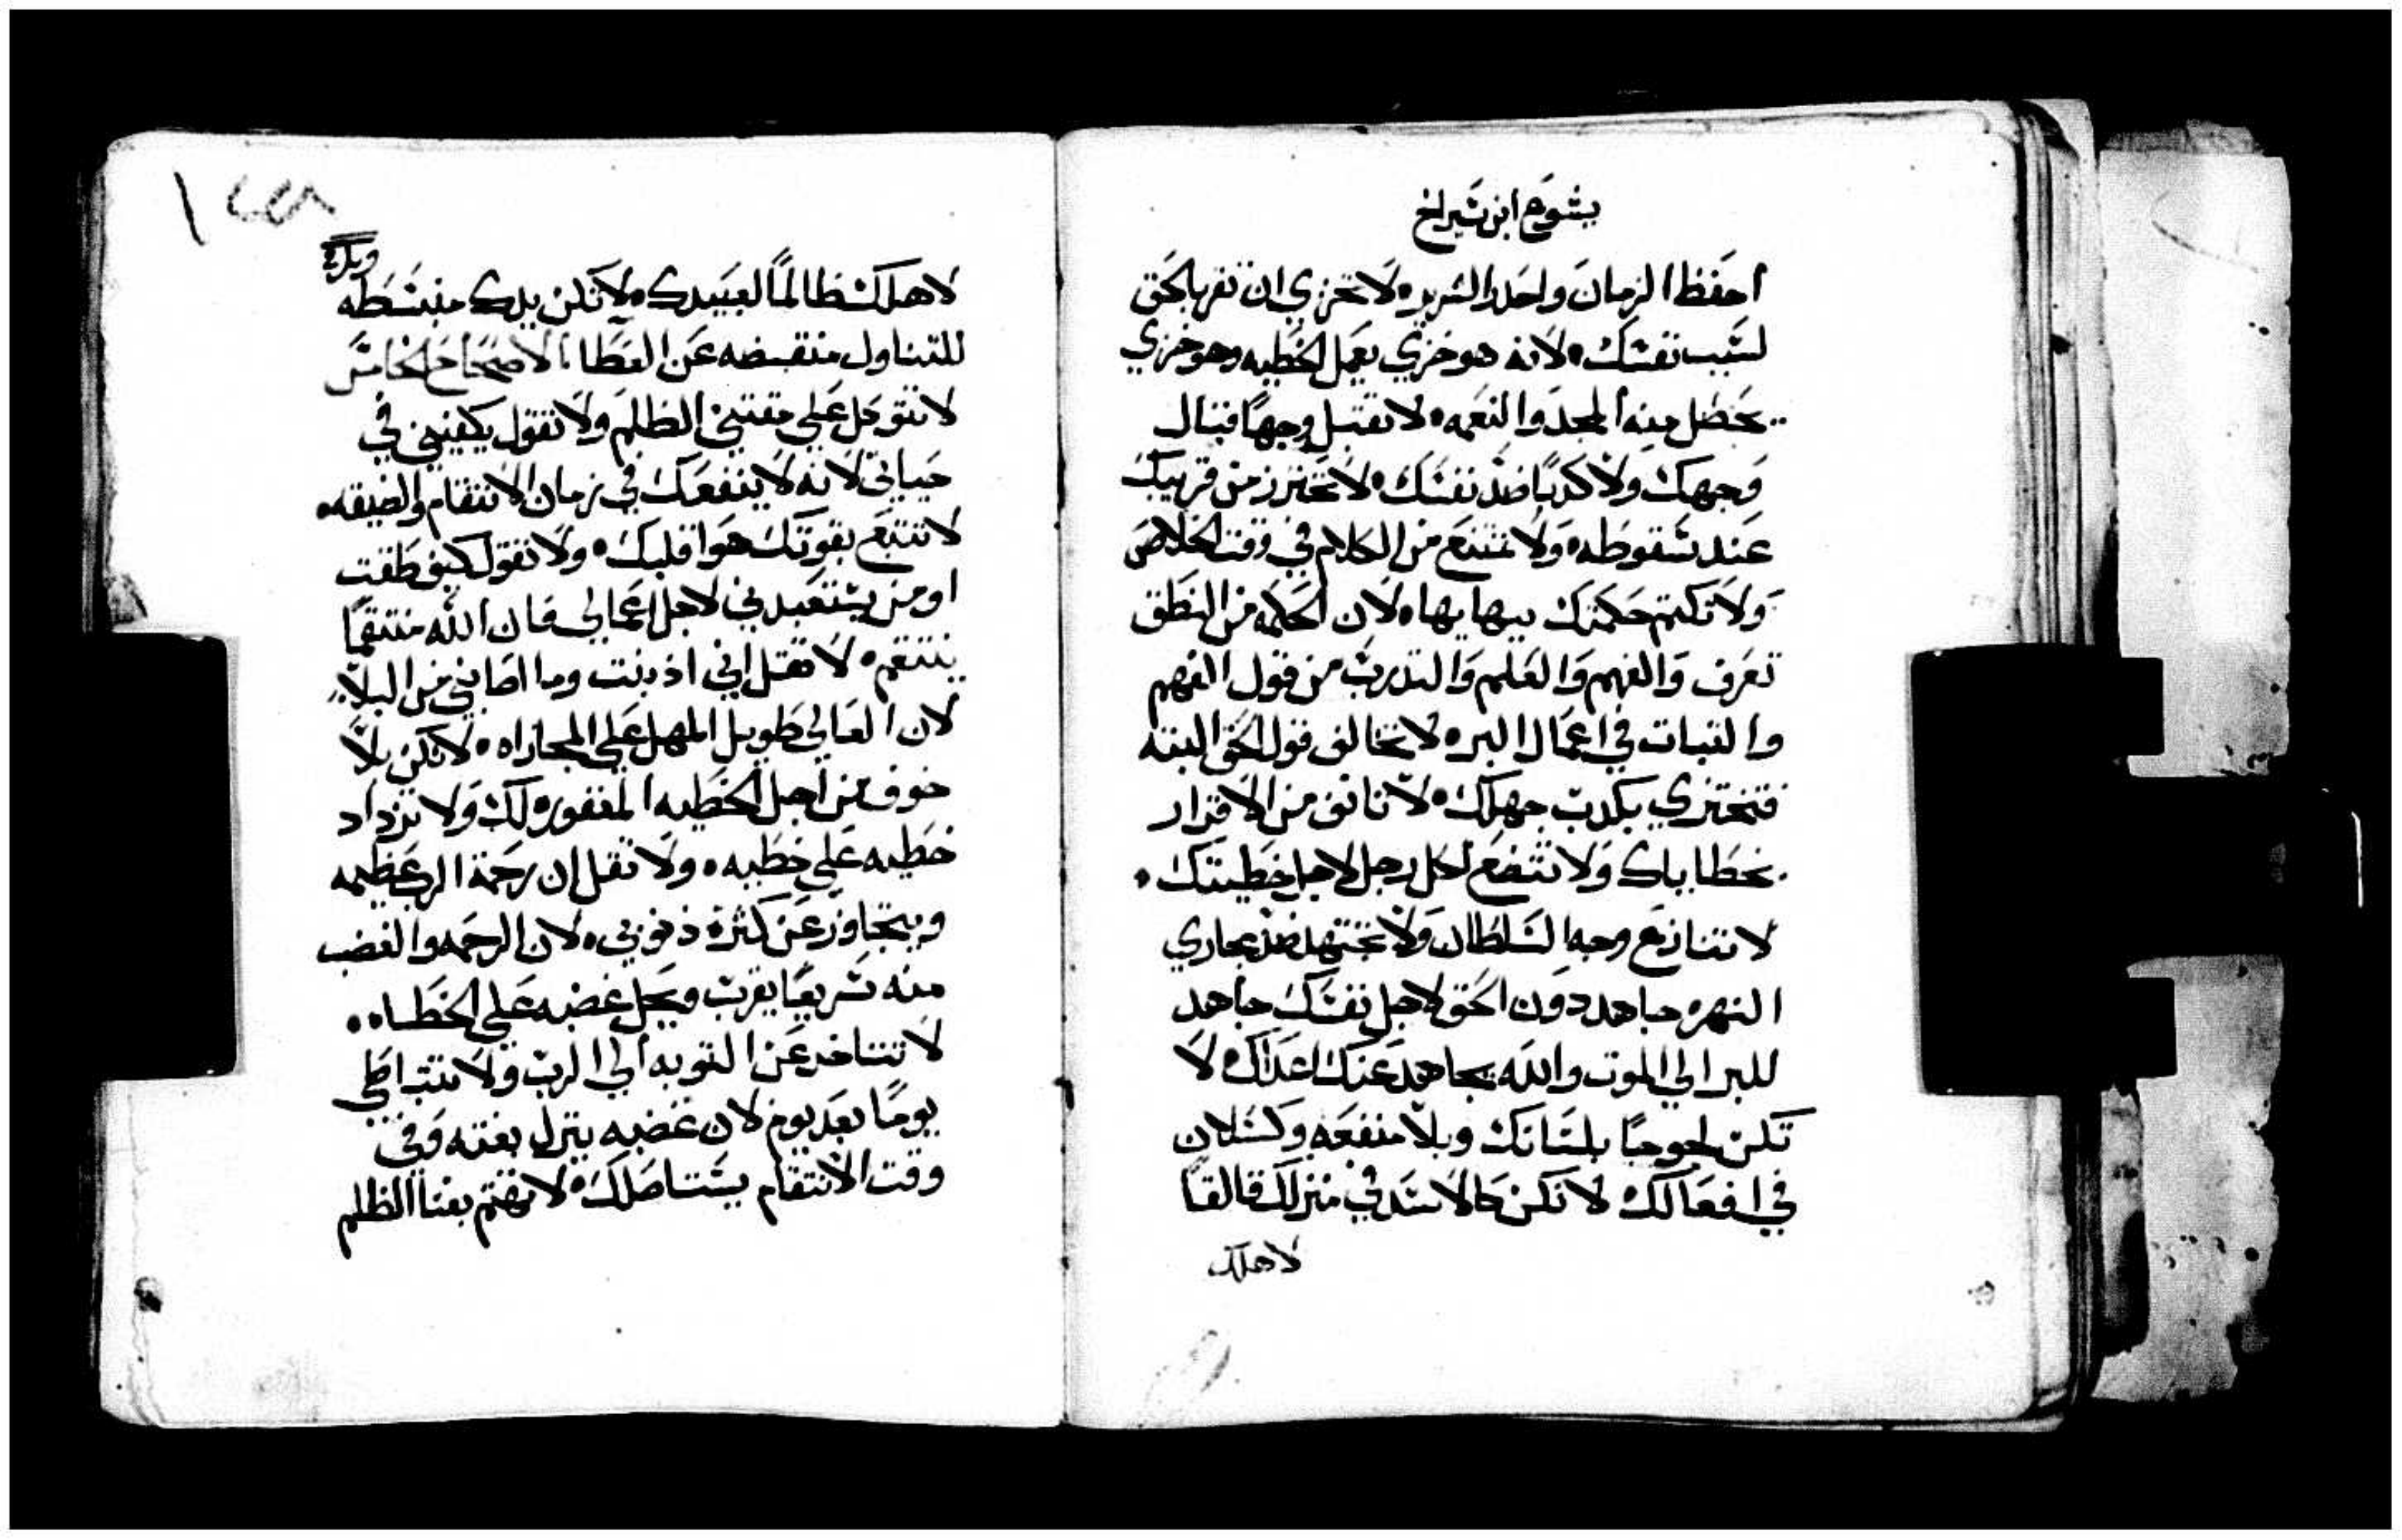 يشوع ابن شيراخ
احفظ الزمان واحدر الشرير لا تخزي ان تقر بالحق
لسبب نفسك لانه هو خزي يعمل الخطيه وهو خزي
يحصل منه المجد والنعمه لا تقتبل وجهاً قبال
وجهك ولا كدباً ضد نفسك لا تحترز من قريبك
عند سقوطه ولا تمتنع من الكلام في وقت الخلاص
ولا تكتم حكمتك ببهايها لان الحكمه من النطق
تعرف والفهم والعلم والتدريب من قول الفهم
والتبات في اعمال البر لا تخالف قول الحق البته
فتختزي بكدب جهلك لا تانف من الاقرار
بخطاياك ولا تتضع لكل رجل لاجل خطيتك
لا تنازع وجه السلطان ولا تجتهد ضد مجاري
النهر جاهد دون الحق لاجل نفسك جاهد
للبر الي الموت والله يجاهد عنك اعداك لا
تكن لحوجاً بلسانك وبلا منفعه وكسلان
في افعالك لا تكن كالاسد في منزلك قالقاً
لاهلك
لاهلك ظالماً لعبيدك ولا تكن يدك منبسطه
للتناول منقبضه عن العطا الاصحاح الخامس
لا تتوكل علي مقتني الظلم ولا تقول يكفيني في
حياتي لانه لا ينفعك في زمان الانتقام والضيقه
لا تتبع بقوتك هوا قلبك ولا تقول كيف طقت
او من يستعبدني لاجل اعمالي فان الله منتقماً
ينتقم لا تقل اني ادنبت وما اصابني من البلا
لان العالي طويل المهل علي المجازاه لا تكن بلا
خوف من اجل الخطيه المغفوره لك ولا تزداد
خطيه علي خطيه ولا تقل ان رحمة الرب عظيمه
ويتجاوز عن كثرة ذنوبي لان الرحمه والغضب
منه سريعاً يقرب ويحل غضبه علي الخطاه
لا تتناخر عن التوبه الي الرب ولا تتباطي
يوماً بعد يوم لان غضبه ينزل بغته وفي
وقت الانتقام يستاصلك لا تهتم بغنا الظلم